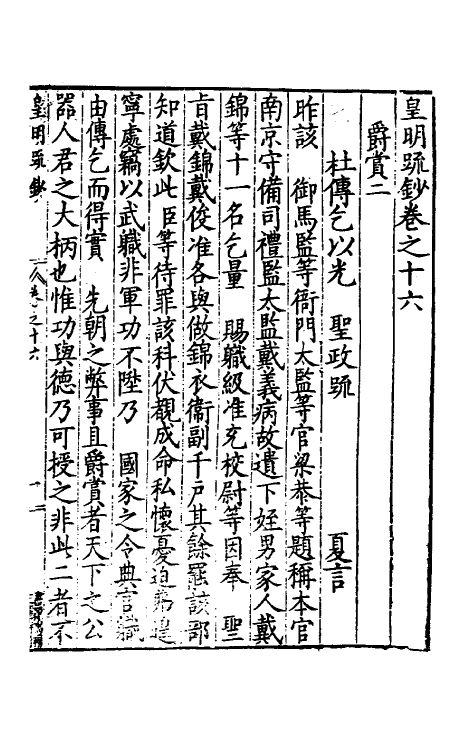 皇明疏鈔卷之十六
爵賞二
杜傳乞以光　聖政疏　夏言
昨該　御馬監等衙門太監等官梁恭等題稱本官
南京守備司禮監太監戴義病故遺下姪男家人戴
錦等十一名乞量　賜職級准充校尉等因奉　聖
旨戴錦戴俊准各與做錦衣衛副千戶其餘罷該部
知道欽此臣等待罪該科伏覩成命私懷憂迫弗遑
寧處竊以武職非軍功不陞乃　國家之令典言職
由傳乞而得實　先朝之弊事且爵賞者天下之公
器人君之大柄也惟功與德乃可授之非此二者不
皇明疏鈔　卷之十六　一